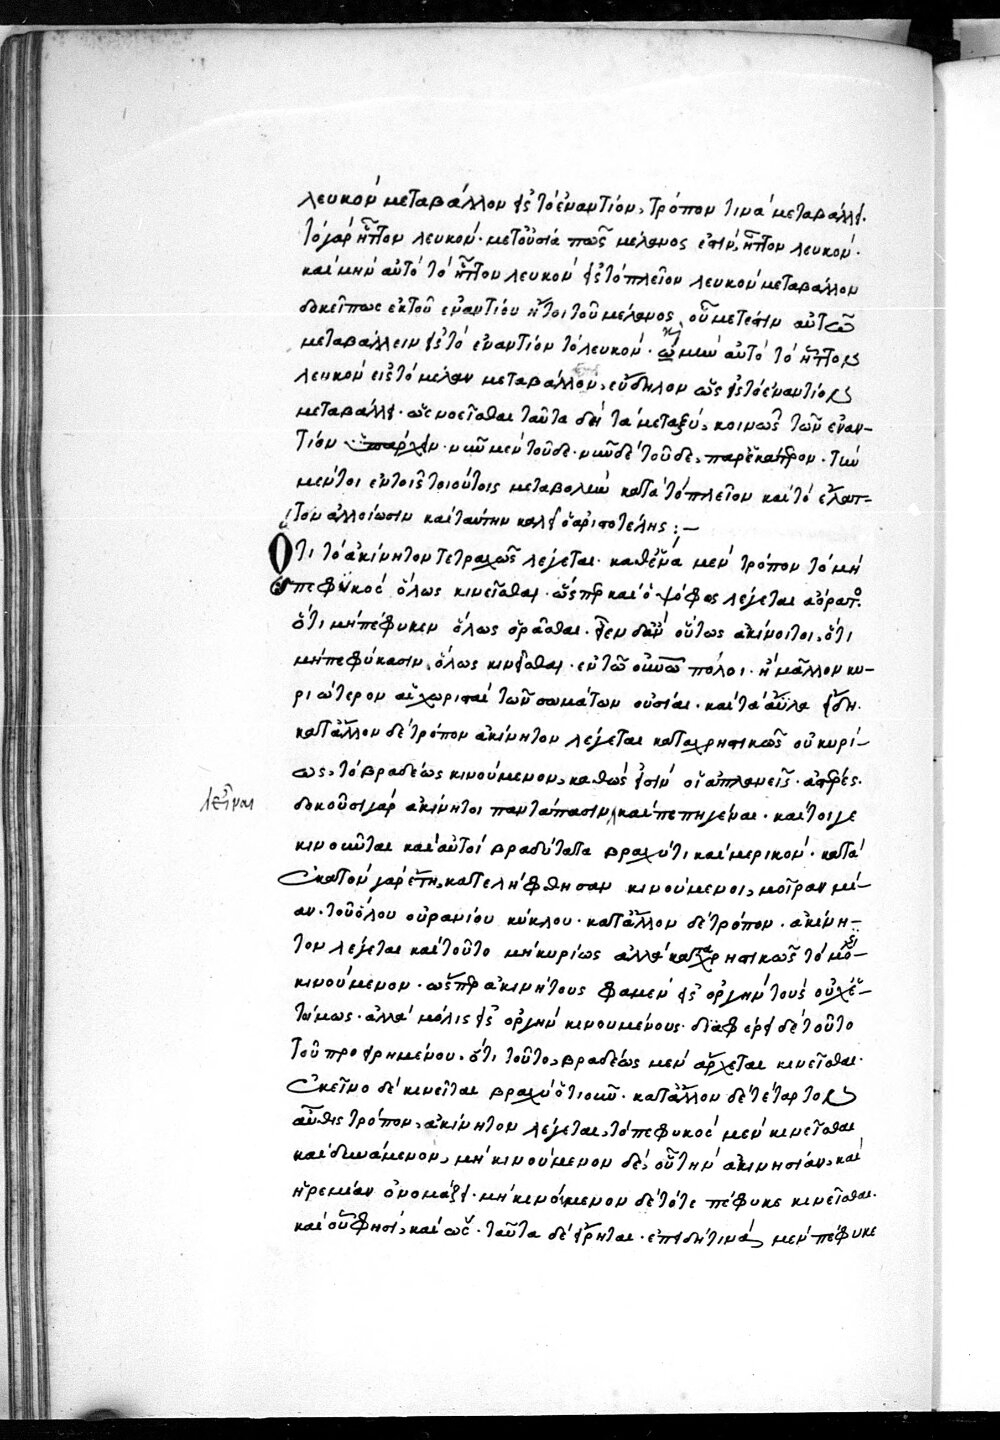 λευκὸν μεταβάλλον εἰς τὸ ἐναντίον, τρόπον τινὰ μεταβάλλει.
τὸ γὰρ ἧττον λευκὸν μετουσία πως μέλανός ἐστιν, ἧττον λευκόν.
καὶ μὴν αὐτὸ τὸ ἧττον λευκὸν εἰς τὸ πλεῖον λευκὸν μεταβάλλον
δοκεῖ πως ἐκ τοῦ ἐναντίου ἤτοι τοῦ μέλανος, οὗ μέτεστιν αὐτῶ
μεταβάλλειν εἰς τὸ ἐναντίον τὸ λευκόν. αὐτὸ τὸ ἧττον
λευκὸν εἰς τὸ μέλαν μεταβάλλον, εὔδηλον ὡς εἰς τὸ ἐναντίον
μεταβάλλει. ὡς νοεῖσθαι ταῦτα δὴ τὰ μεταξὺ, κοινῶς τῶν ἐναν-
τίον νῦν μὲν τοῦδε. νῦν δὲ τοῦδε, παρ' ἑκάτερον. τὴν
μέντοι ἐν τοῖς τοιούτοις μεταβολὴν κατὰ τὸ πλεῖον καὶ τὸ ἔλατ-
τον ἀλλοίωσιν καὶ ταύτην καλεῖ ὁ ἀριστοτέλης :-
Ὅτι τὸ ἀκίνητον τετραχῶς λέγεται. καθ' ἕνα μὲν τρόπον τὸ μὴ
πεφυκὸς ὅλως κινεῖσθαι. ὥσπερ καὶ ὁ ψόφος λέγεται ἀόρατος
ὅτι μὴ πέφυκεν ὅλως ὁρᾶσθαι. εἶεν δ' ἂν οὕτως ἀκίνητοι, ὅτι
μὴ πεφύκασιν, ὅλως κινεῖσθαι. ἐν τῶ οὐνῶ πόλοι. ἢ μᾶλλον κυ-
ριώτερον αἱ χωρισταὶ τῶν σωμάτων οὐσίαι. καὶ τὰ ἄϋλα εἴδη.
κατ' ἄλλον δὲ τρόπον ἀκίνητον λέγεται καταχρηστικῶς οὐ κυρί-
ως, τὸ βραδέως κινούμενον, καθὼς εἰσὶν οἱ ἀπλανεῖς ἀστέρες.
δοκοῦσι γὰρ ἀκίνητοι παντάπασιν καὶ πεπηγέναι. καίτοιγε
κινοῦνται καὶ αὐτοὶ βραδύτατα βραχύ τι καὶ μερικόν. κατὰ
ἑκατὸν γὰρ ἔτη, κατελήφθησαν κινούμενοι, μοῖραν μί-
αν τοῦ ὅλου οὐρανίου κύκλου. κατ' ἄλλον δὲ τρόπον. ἀκίνη-
τον λέγεται καὶ τοῦτο μὴ κυρίως ἀλλὰ καταχρηστικῶς τὸ μό-
κινούμενον. ὥσπερ ἀκινήτους φαμὲν εἰς ὀργὴν τοὺς οὐχ ἑ-
τοίμως. ἀλλὰ μόλις εἰς ὀργὴν κινουμένους. διαφέρει δὲ τοῦτο
τοῦ προειρημένου. ὅτι τοῦτο, βραδέως μὲν ἄρχεται κινεῖσθαι.
ἐκεῖνο δὲ κινεῖται βραχὺ ὅτι οὖν. κατ' ἄλλον δὲ τέταρτον
αὖθις τρόπον, ἀκίνητον λέγεται, τὸ πεφυκὸς μὲν κινεῖσθαι
καὶ δυνάμενον, μὴ κινούμενον δὲ, οὗ τὴν ἀκινησίαν, καὶ
ἠρεμίαν ὀνομάζει. μὴ κινούμενον δὲ τότε πέφυκε κινεῖσθαι.
καὶ οὗ φησὶ, καὶ ὡς. ταῦτα δὲ εἴρηται. ἐπειδή τινα, μὲν πέφυκε